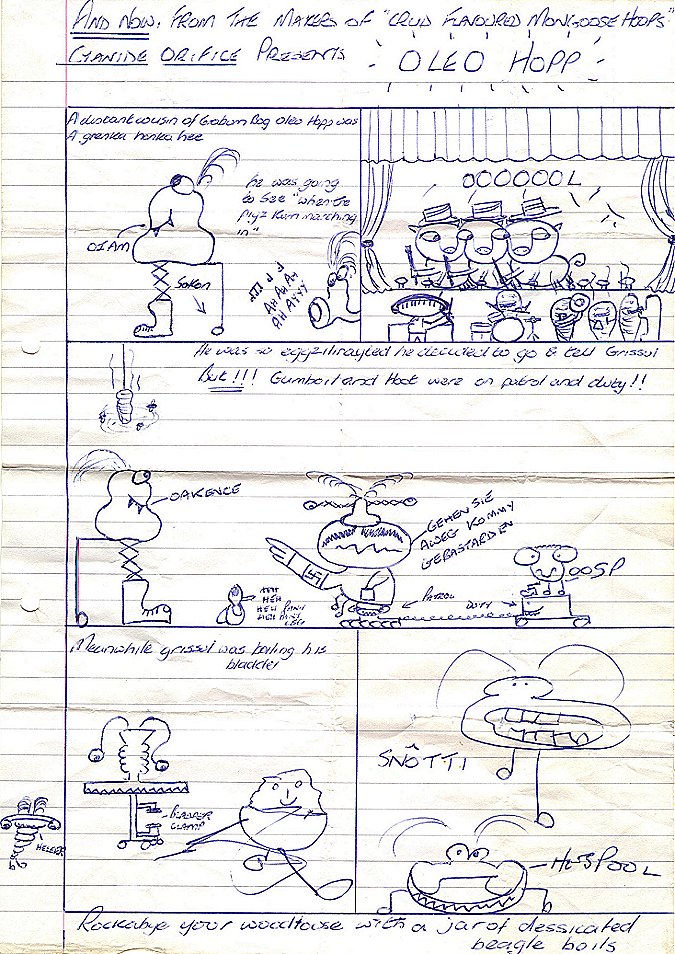 AND NOW, FROM THE MAKERS OF "CRUD FLAVOURED MONGOOSE HOOPS"
CYANIDE ORIFICE PRESENTS
OLEO HOPP
A distant cousin of Goburn Bog Oleo Hopp was
A grenka honka hee
he was going
to see "when the
Pigz Kum marching
in"
OIAM
Sokon
AH AH AH
AH AYYY
OOOOOOL
He was so eggzilirayted he decided to go & tell Grissul
But!!! Gumboil and Hoot were on patrol and duty!!
OAKENCE
GEHEN SIE
AWEG KOMMY
GEBASTARDEN
OOSP
HEH
HEH
HEH PANT
HEH PANT
PATROL
DUTY
Meanwhile grissul was boiling his
bladder
BLADDER
CLAMP
SNÔTTI
HESPOOL
Rockabye your woodlouse with a jar of dessicated
beagle boils